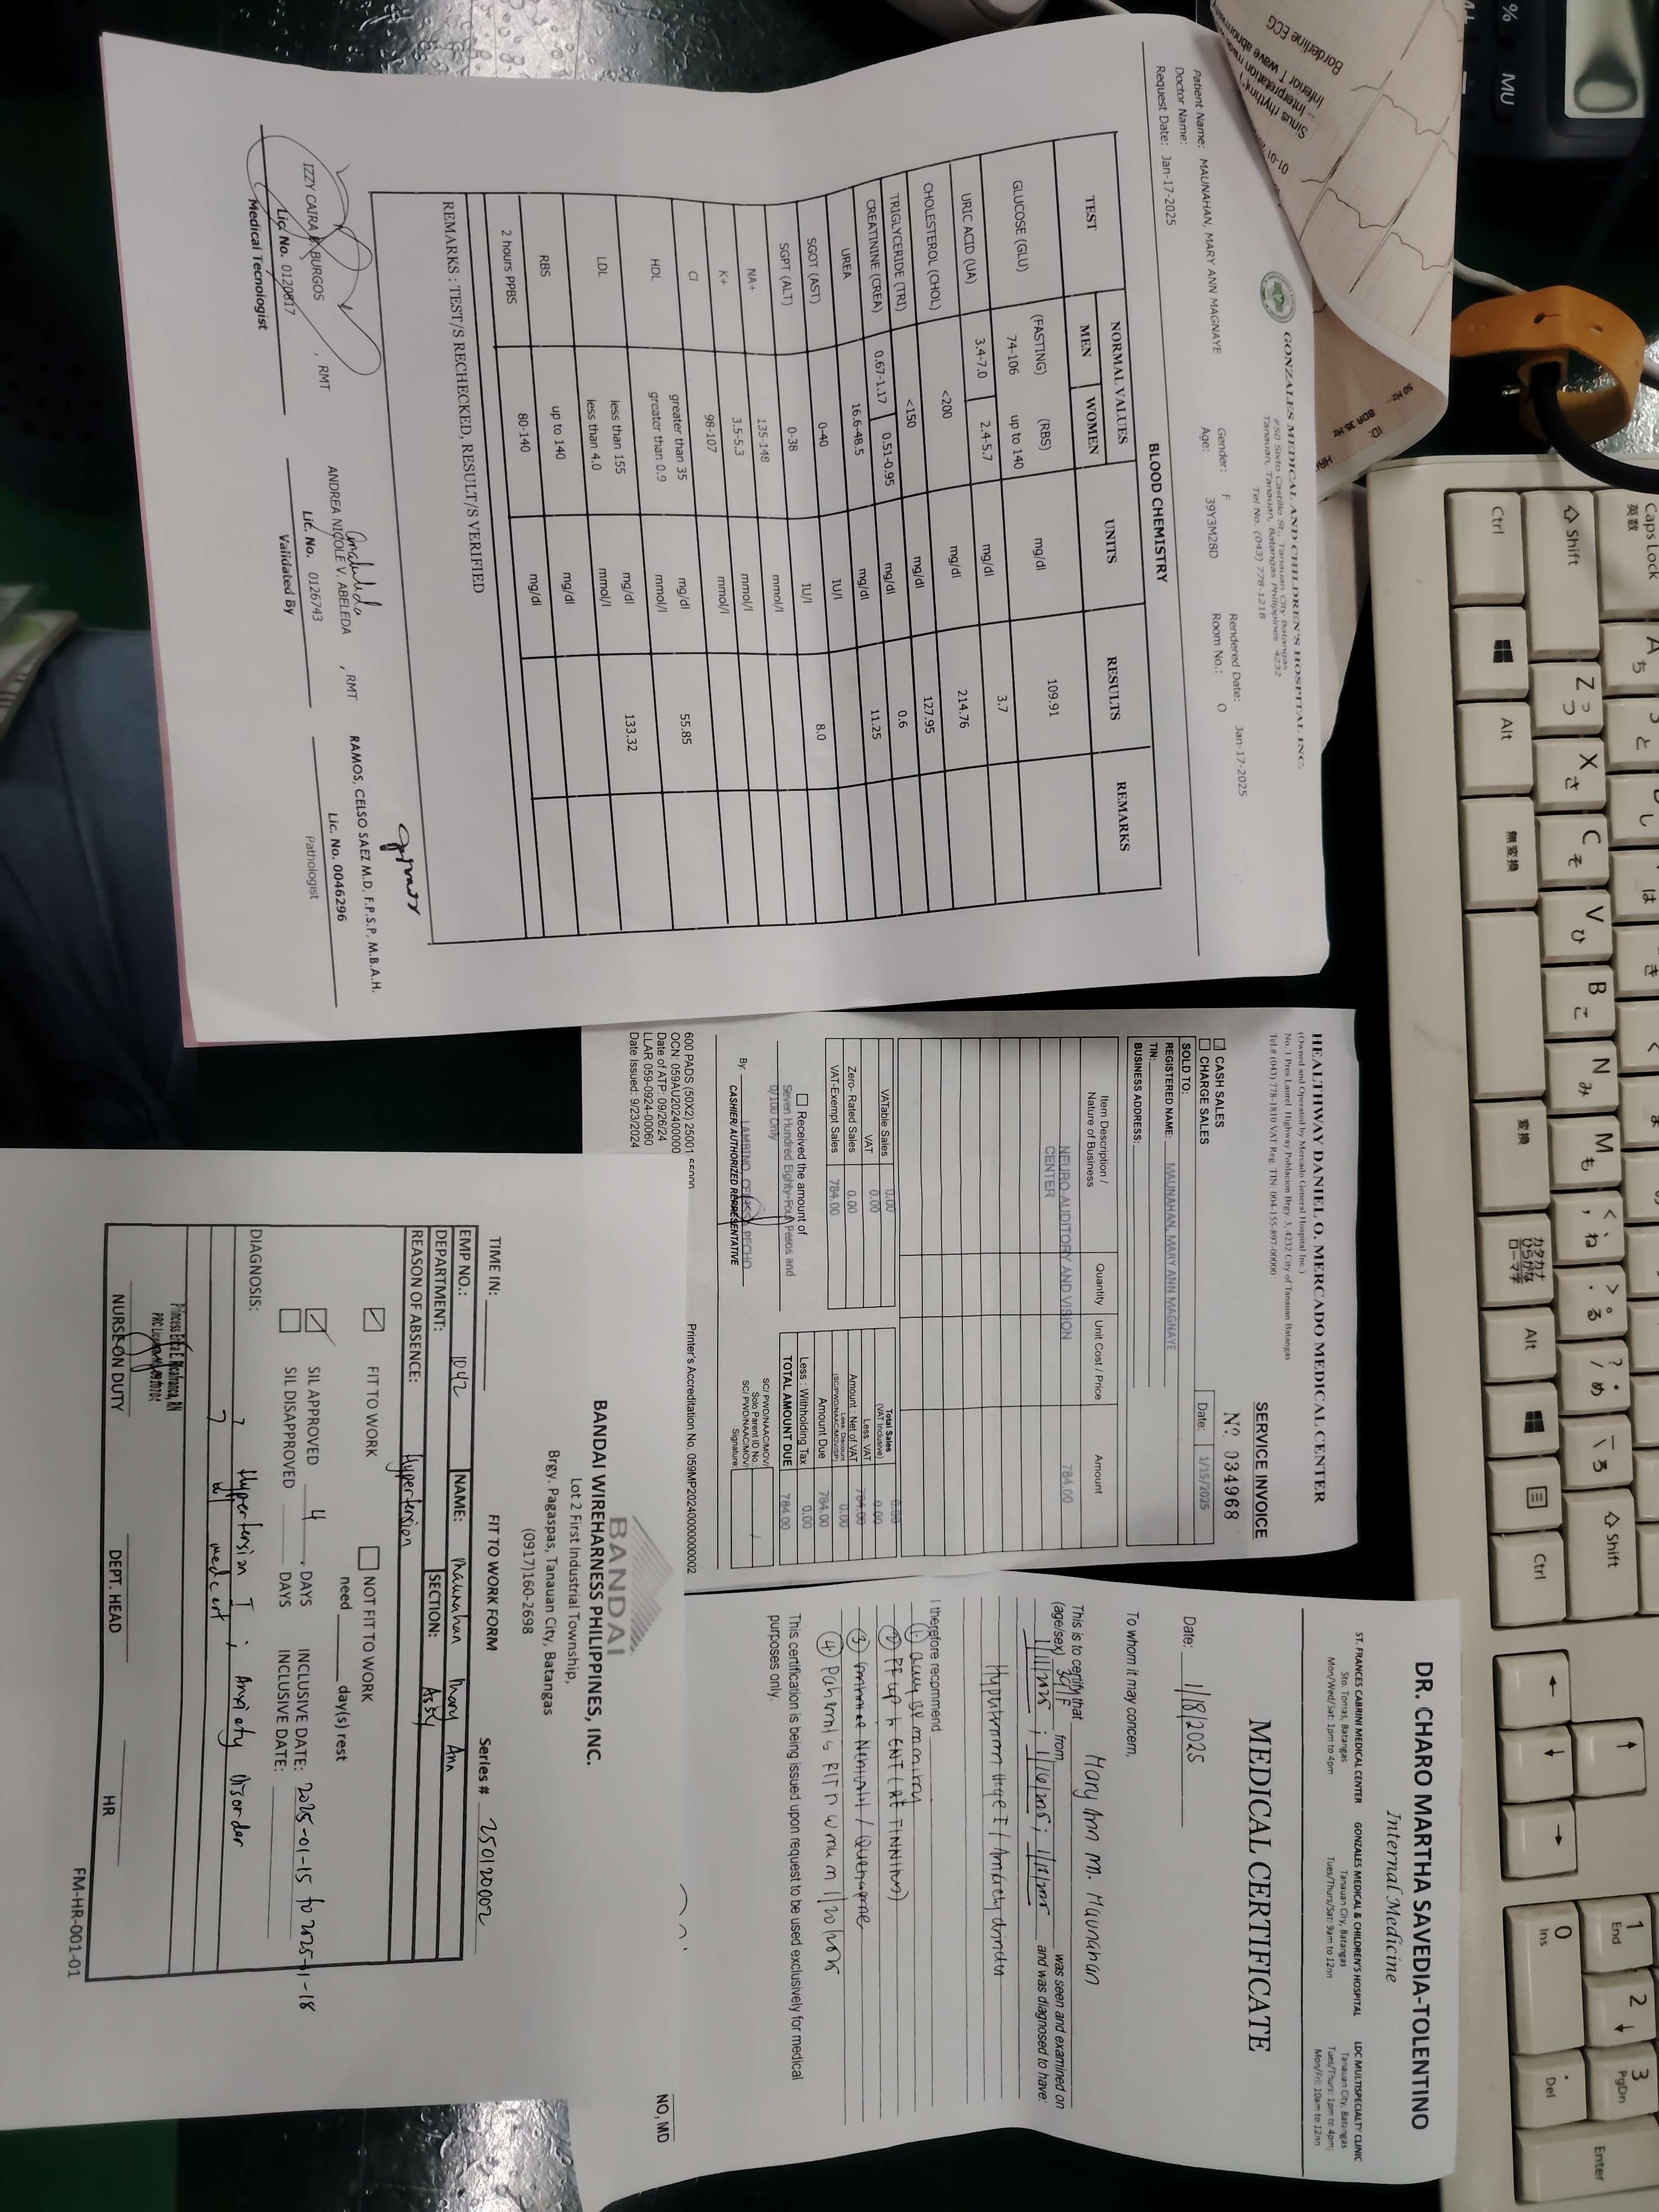 GONZALES MEDICAL AND CHILDREN'S HOSPITAL INC.
#50 Sixto Castillo St., Tanauan City Batangas
Tanauan, Tanauan, Batangas Philippines 4232
Tel No. (043) 778-1218
Patient Name: MAUNAHAN, MARY ANN MAGNAYE
Gender: F
Rendered Date: Jan-17-2025
Doctor Name:
Age: 39Y3M28D
Room No.: O
Request Date: Jan-17-2025
BLOOD CHEMISTRY
TEST NORMAL VALUES UNITS RESULTS REMARKS
MEN WOMEN
GLUCOSE (GLU) (FASTING) 74-106 (RBS) up to 140 mg/dl 109.91
URIC ACID (UA) 3.4-7.0 2.4-5.7 mg/dl 3.7
CHOLESTEROL (CHOL) <200 mg/dl 214.76
TRIGLYCERIDE (TRI) <150 mg/dl 127.95
CREATININE (CREA) 0.67-1.17 0.51-0.95 mg/dl 0.6
UREA 16.6-48.5 mg/dl 11.25
SGOT (AST) 0-40 IU/l
SGPT (ALT) 0-38 IU/l 8.0
NA+ 135-148 mmol/l
K+ 3.5-5.3 mmol/l
Cl 98-107 mmol/l
HDL greater than 35 mg/dl 55.85
greater than 0.9 mmol/l
LDL less than 155 mg/dl 133.32
less than 4.0 mmol/l
RBS up to 140 mg/dl
2 hours PPBS 80-140 mg/dl
REMARKS : TEST/S RECHECKED, RESULT/S VERIFIED
IZZY CAIRA B. BURGOS , RMT
Lic. No. 0120817
Medical Tecnologist
ANDREA NICOLE V. ABELEDA , RMT
Lic. No. 0126743
Validated By
RAMOS, CELSO SAEZ M.D, F.P.S.P, M.B.A.H.
Lic. No. 0046296
Pathologist
Sinus rhythm
Inferior T wave
Borderline ECG
50 Hz
BDR 35 Hz
ID:
HEALTHWAY DANIEL O. MERCADO MEDICAL CENTER
(Owned and Operated by Mercado General Hospital Inc.)
No. 1 Pres Laurel Highway Poblacion Brgy. 3, 4232 City of Tanauan Batangas
Tel.# (043) 778-1810 VAT Reg. TIN: 004-155-897-00000
SERVICE INVOICE
CASH SALES
CHARGE SALES
Nº 034968
Date: 1/15/2025
SOLD TO:
REGISTERED NAME: MAUNAHAN, MARY ANN MAGNAYE
TIN:
BUSINESS ADDRESS:
Item Description / Nature of Business Quantity Unit Cost / Price Amount
NEURO AUDITORY AND VISION 784.00
CENTER
VATable Sales 0.00
VAT 0.00
Zero- Rated Sales 0.00
VAT-Exempt Sales 784.00
Total Sales (VAT Inclusive) 0.00
Less. VAT 0.00
Amount : Net of VAT 784.00
Less. Discount 0.00
Amount Due 784.00
Less : Withholding Tax 0.00
TOTAL AMOUNT DUE 784.00
Received the amount of
Seven Hundred Eighty-Four Pesos and
0/100 Only
SC/PWD/NAAC/MOV/
Solo Parent ID No.
SC/PWD/NAAC/MOV/
Signature
By:
CASHIER/ AUTHORIZED REPRESENTATIVE
600 PADS (50X2) 25001
Date of ATP: 09/26/24
LLAR 059-0924-00060
Date Issued: 9/23/2024
Printer's Accreditation No. 059MP20240000000002
DR. CHARO MARTHA SAVEDIA-TOLENTINO
Internal Medicine
ST. FRANCES CABRINI MEDICAL CENTER
Sto. Tomas, Batangas
Mon/Wed/Sat: 1pm to 4pm
GONZALES MEDICAL & CHILDREN'S HOSPITAL
Tanauan City, Batangas
Tues/Thurs/Sat: 9am to 12nn
LDC MULTISPECIALTY CLINIC
Tanauan City, Batangas
Tues/Thurs: 1pm to 4pm;
Mon/Fri: 10am to 12nn
MEDICAL CERTIFICATE
Date: 1/18/2025
To whom it may concern,
This is to certify that Mary Ann M. Maunahan
(age/sex) 39/F from was seen and examined on
and was diagnosed to have:
I therefore recommend
This certification is being issued upon request to be used exclusively for medical
purposes only.
NO, MD
BANDAI
BANDAI WIREHARNESS PHILIPPINES, INC.
Lot 2 First Industrial Township,
Brgy. Pagaspas, Tanauan City, Batangas
(0917)160-2698
FIT TO WORK FORM
TIME IN:
Series # 250120002
EMP NO.: 1042 NAME: Maunahan Mary Ann
DEPARTMENT: SECTION: Assy
REASON OF ABSENCE: Hypertension
FIT TO WORK
NOT FIT TO WORK
need day(s) rest
SIL APPROVED 4 DAYS INCLUSIVE DATE: 2025-01-15 to 2025-01-18
SIL DISAPPROVED DAYS INCLUSIVE DATE:
DIAGNOSIS: Hypertension I ; Anxiety Disorder
w/ med cert
NURSE ON DUTY
DEPT. HEAD
HR
FM-HR-001-01
% MU
Caps Lock 英数
Shift Z つ X さ C そ V ひ B こ N み M も < ね > 。 る ? ・ / め ろ Shift
Ctrl Alt 無変換 変換 カタカナ ひらがな ローマ字 Alt Ctrl
1 End 2 3 PgDn
0 Ins . Del Enter